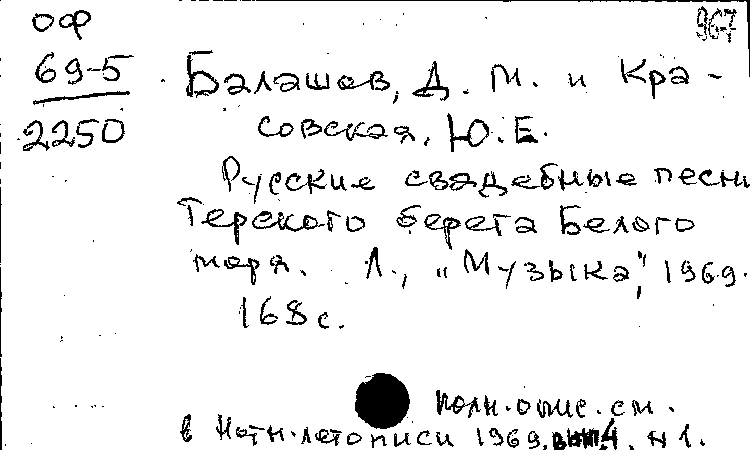 ОФ
967
69-5
2250
Балашов, Д. М. и Кра-
совская, Ю. Е.
Русские свадебные песни
Терского берега Белого
моря. Л., "Музыка", 1969.
168 с.
Полн. опис. см.
в Нотн. летописи 1969, вып. 4, н 1.